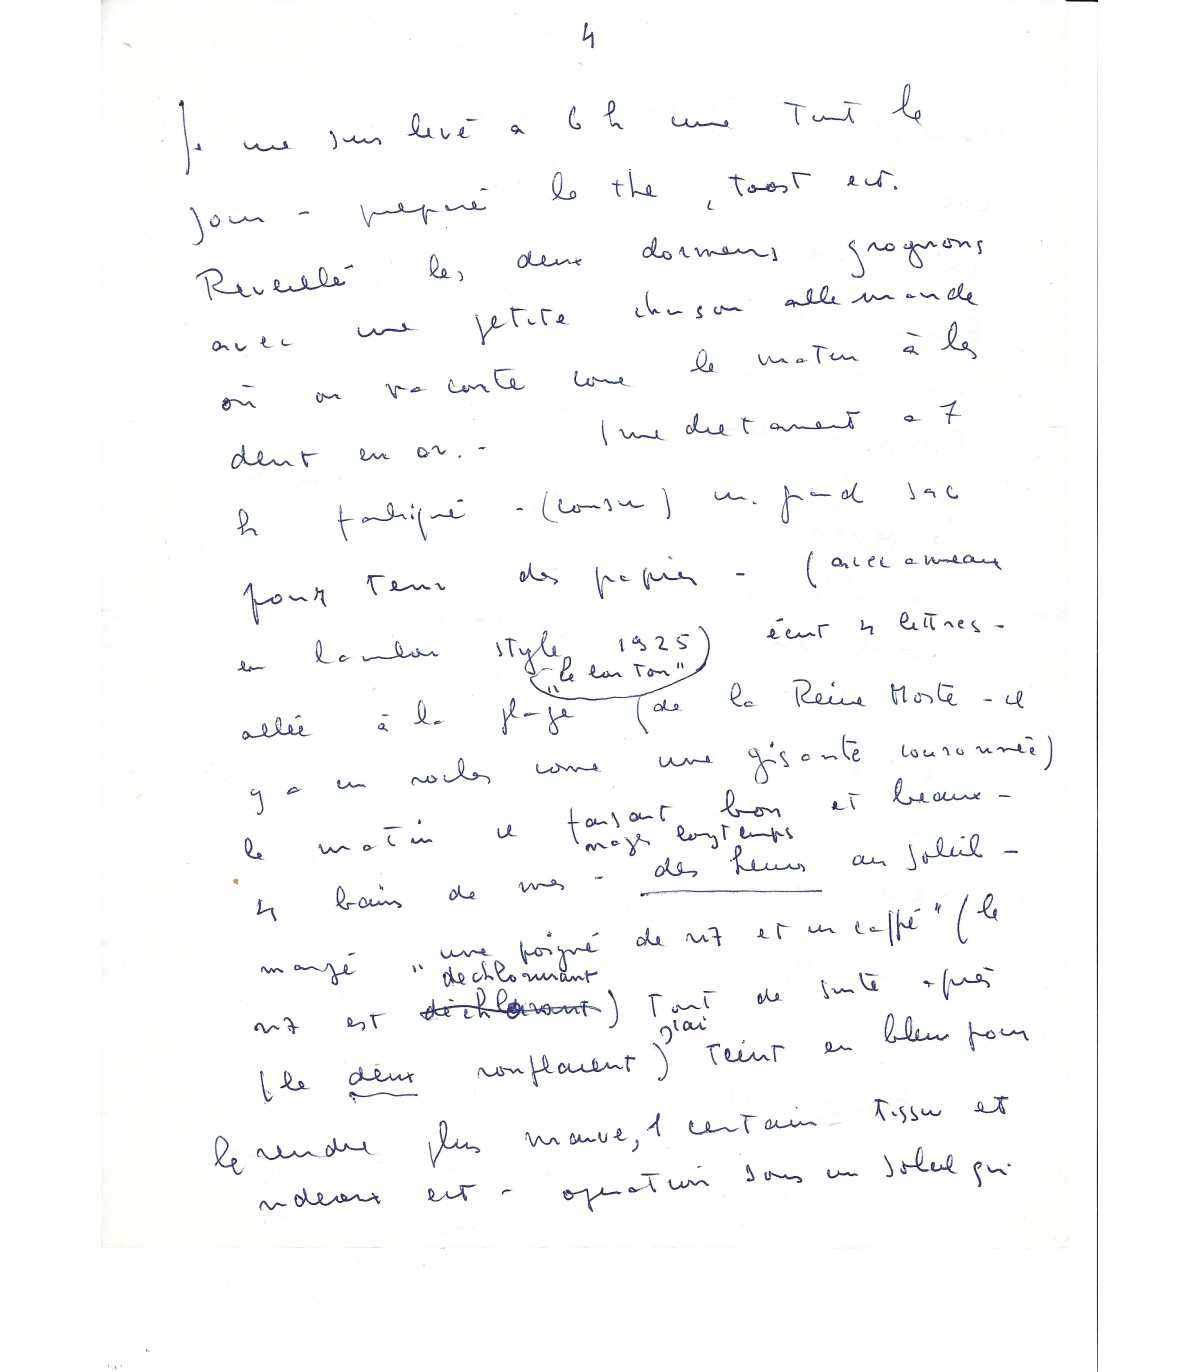 4
Je me suis levé a 6 h comme Tout le
jour - preparé le the, toast ect.
Reveillé les deux dormeurs grognons
avec une petite chanson allemande
où on raconte come le matin à les
dent en or. - Imedietament a 7
h fabriqué - (consu) un grand sac
pour tenir des papier - (avec anneaux
en bambou style 1925) écrit 4 lettres -
"le carton"
allée à la plage (de la Reine Morte - il
y a un rocher come une gisante couronnée)
le matin il faisant bon et beaux -
nagé longtemps
4 bains de mer - des heures au soleil -
mangé "une poigné de riz et un caffé" (le
dechlorurant
riz est) Tout de suite après
j'ai
(le deux ronflaient) Teint en bleu pour
le rendre plus mauve, 1 certain tissu et
rideaux ect - operation sous un soleil qui